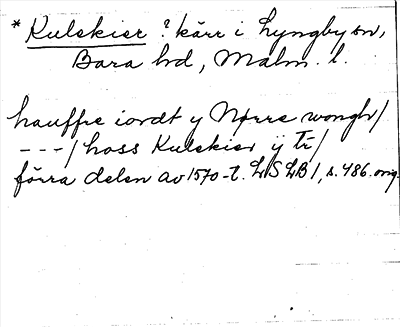 * Kulskier ? kärr i Lyngby sn,
Bara hd, Malm. l.
hauffre iordt y Nørre wongh/
---/ hoss Kulskier ÿ tr/
förra delen av 1570-t. LSLB 1, s. 486. orig.